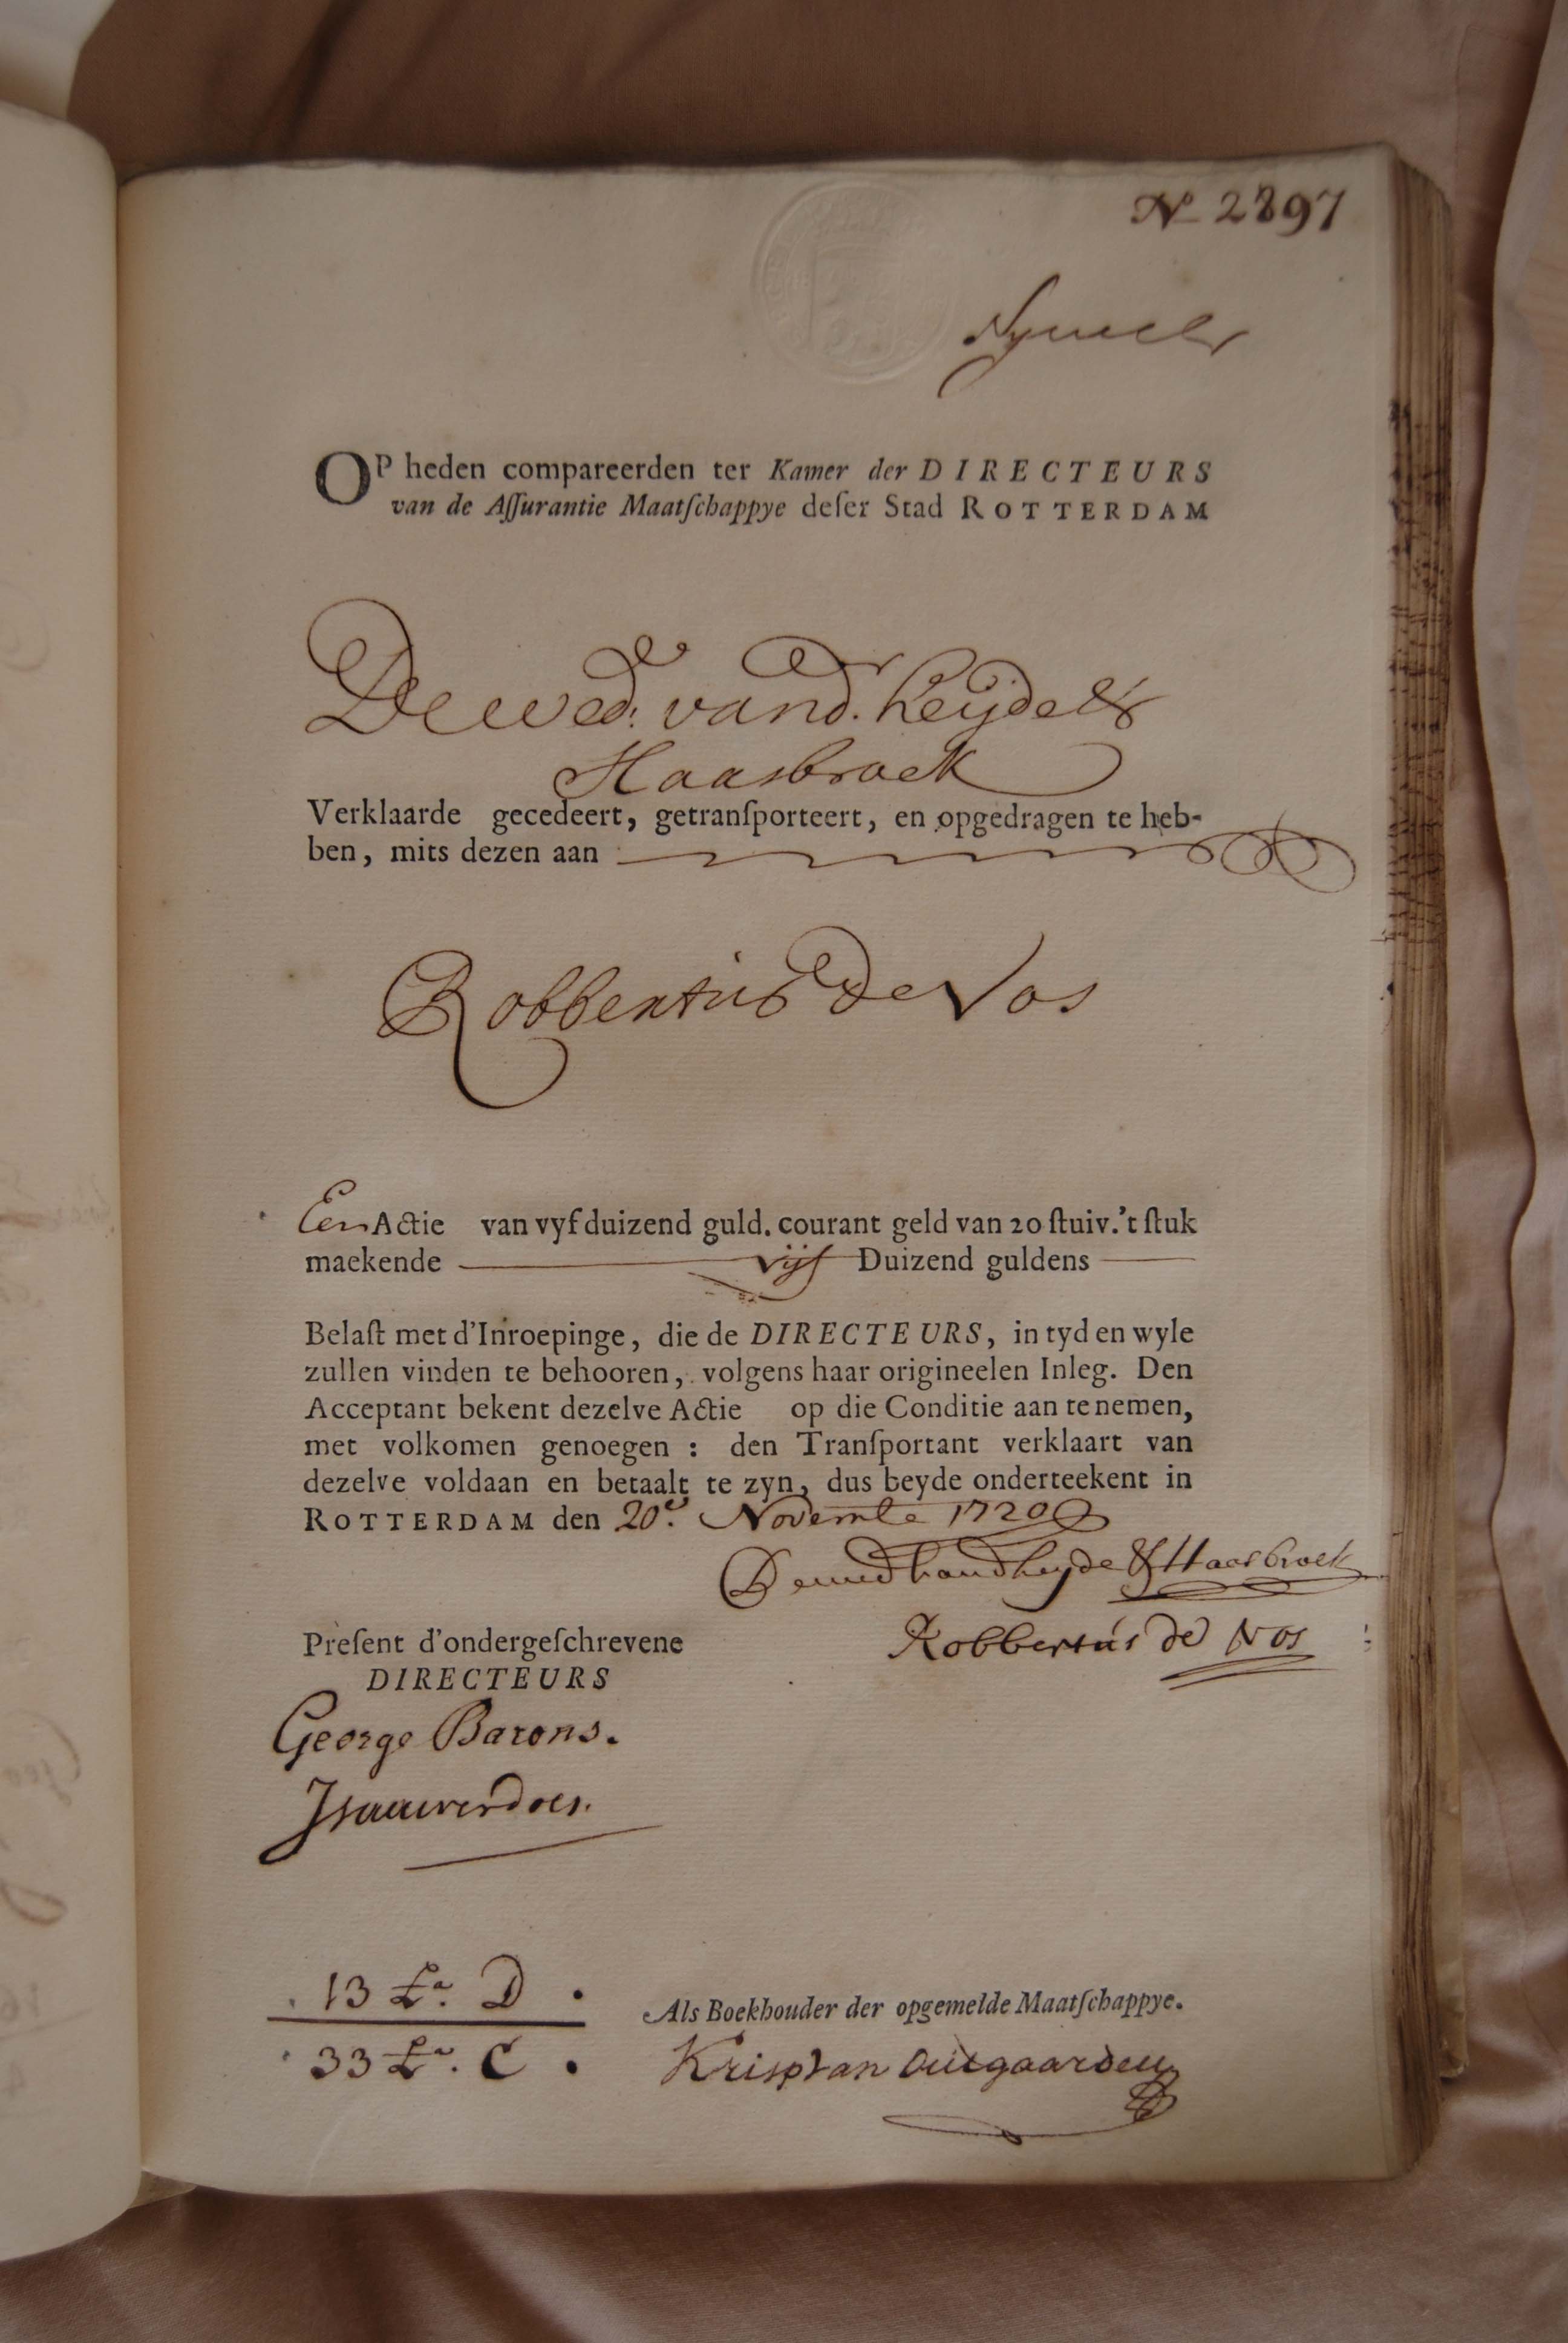 No 2897
OP heden compareerden ter Kamer der DIRECTEURS
van de Aſſurantie Maatſchappye deſer Stad ROTTERDAM
De wed. vand. heijde &
Haasbroek
Verklaarde gecedeert, getranſporteert, en opgedragen te heb-
ben, mits dezen aan
Robbertus de Vos
Een Actie van vyf duizend guld. courant geld van 20 ſtuiv. 't ſtuk
maekende vijf Duizend guldens
Belaſt met d'Inroepinge, die de DIRECTEURS, in tyd en wyle
zullen vinden te behooren, volgens haar origineelen Inleg. Den
Acceptant bekent dezelve Actie op die Conditie aan te nemen,
met volkomen genoegen : den Tranſportant verklaart van
dezelve voldaan en betaalt te zyn, dus beyde onderteekent in
ROTTERDAM den 20e. Novembr 1720
De wed vand heyde & Haasbroek
Robbertus de Vos
Preſent d'ondergeſchrevene
DIRECTEURS
George Barons.
13 La. D
Als Boekhouder der opgemelde Maatſchappye.
33 La. C
Krisp van Outgaarden